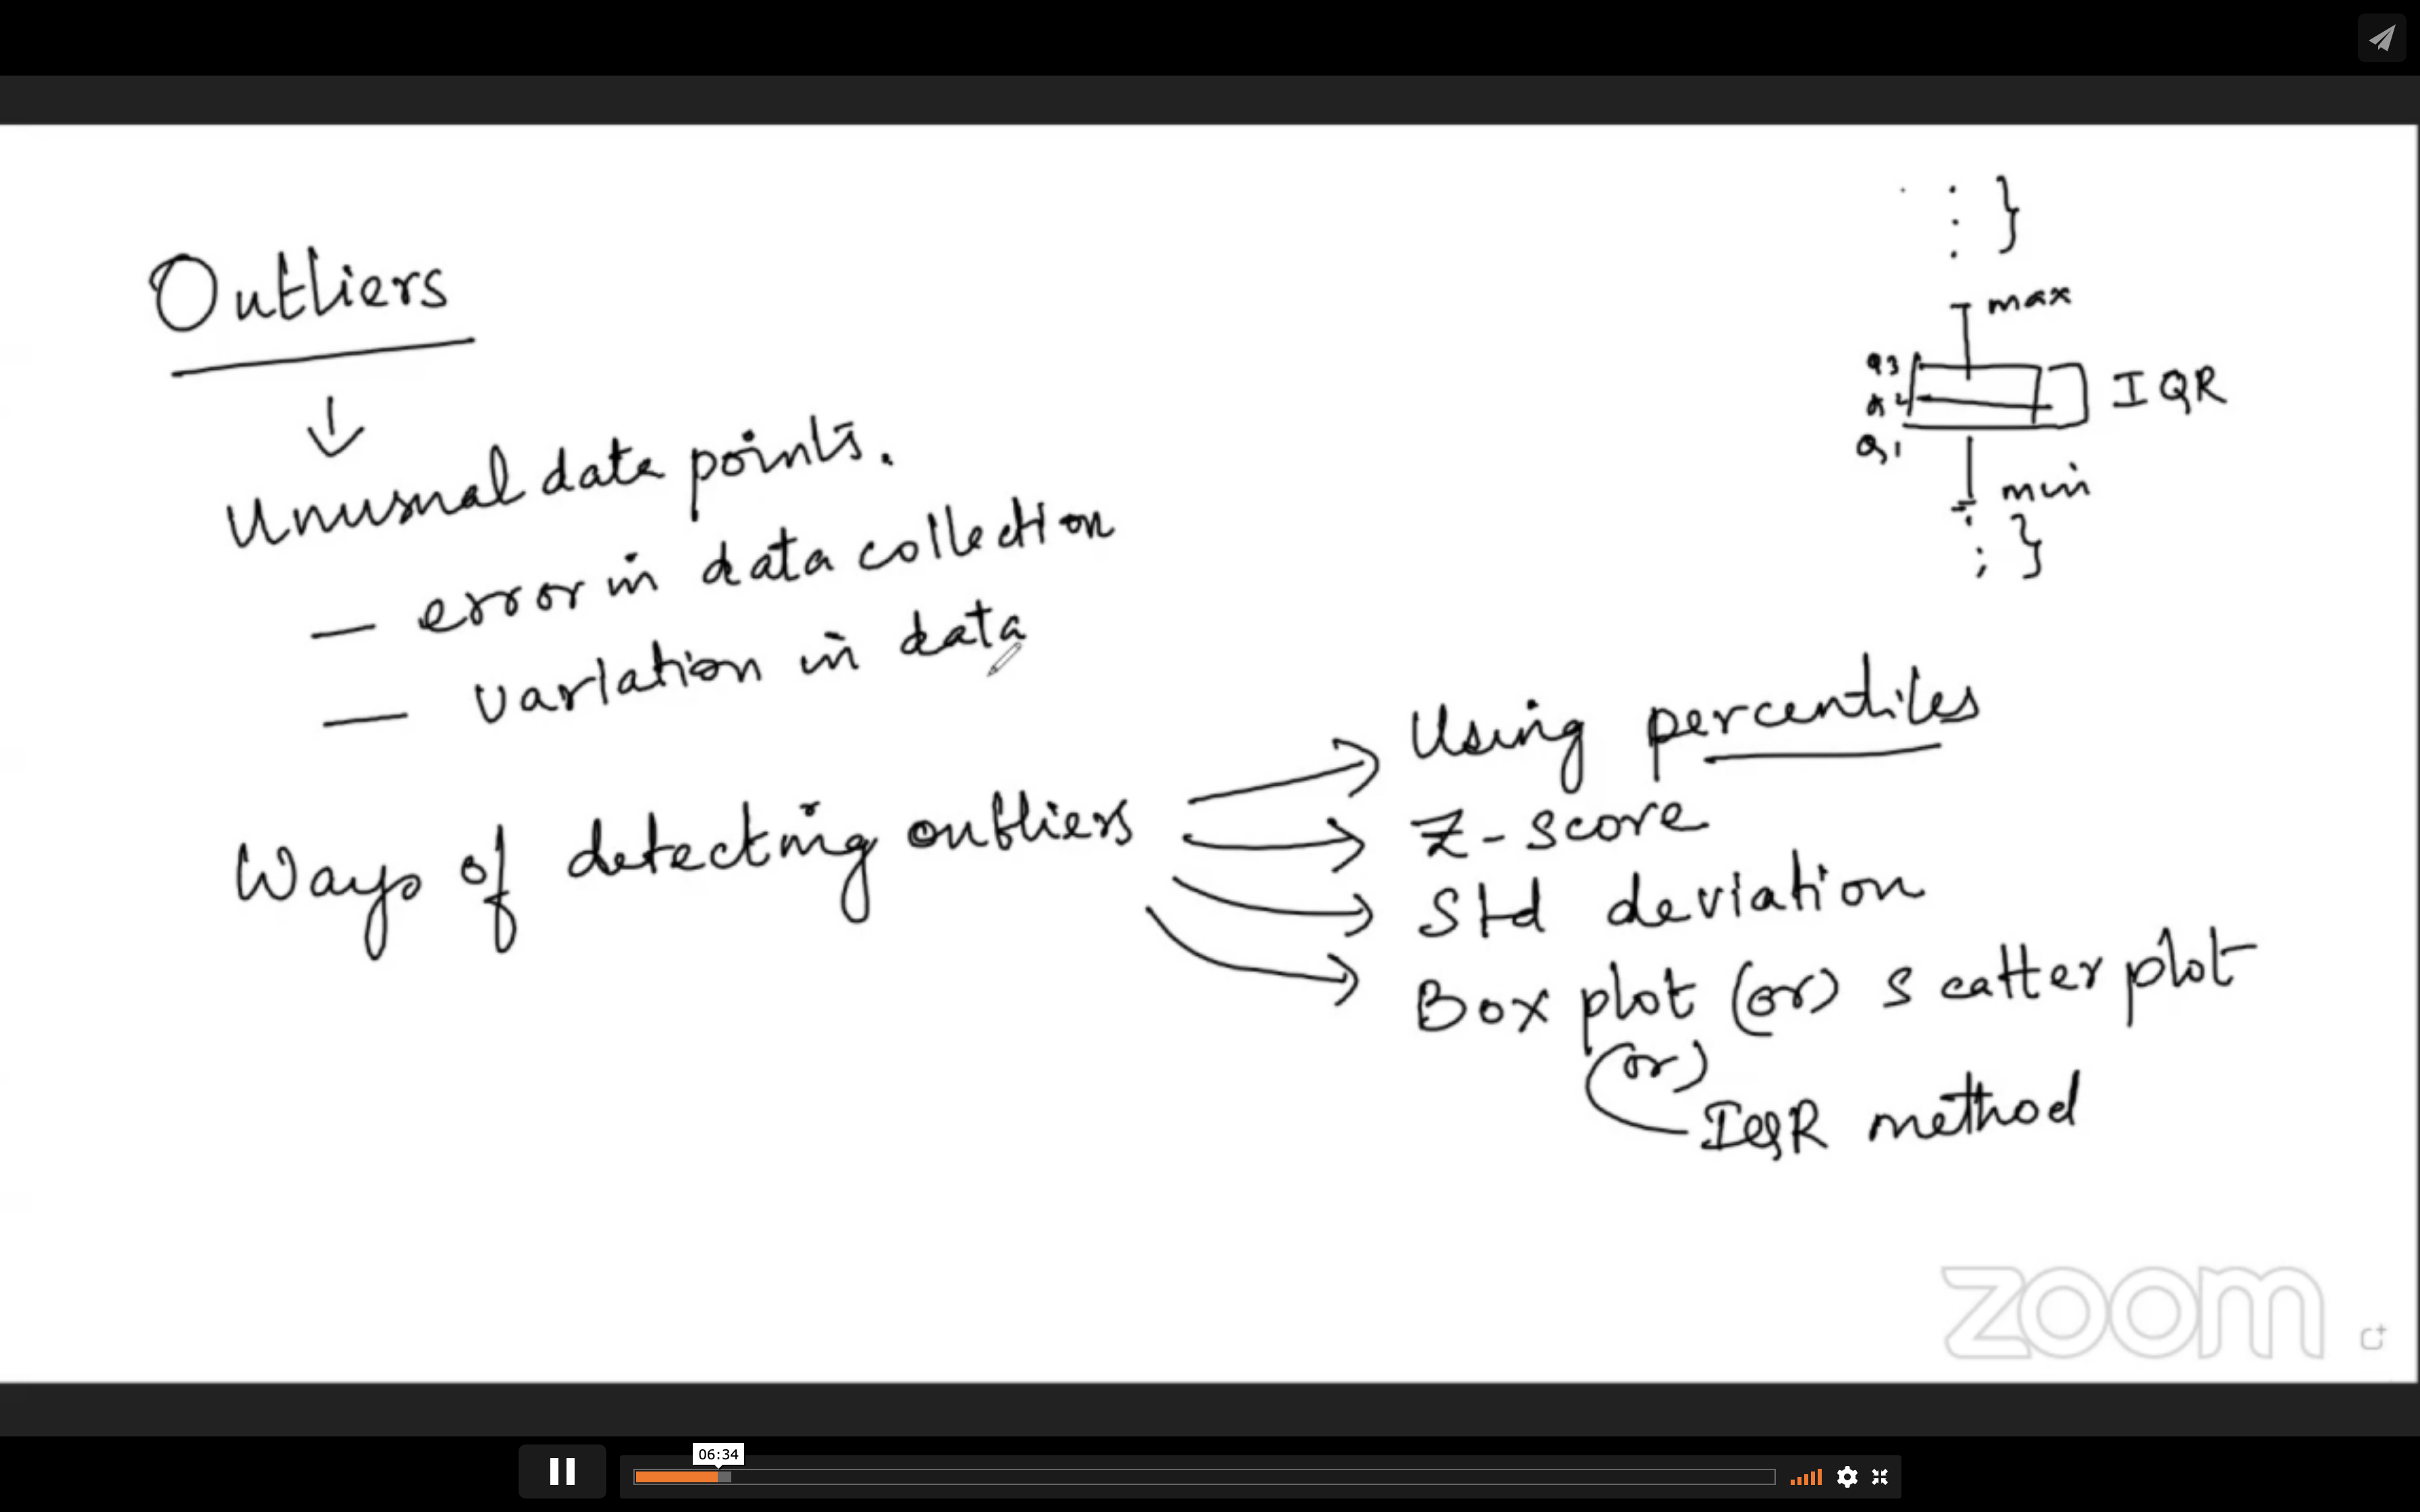 Outliers
Unusual data points.
— error in data collection
— variation in data
max
Q3
Q2
Q1
IQR
min
Ways of detecting outliers
Using percentiles
Z-score
Std deviation
Box plot (or) scatter plot
(or)
IQR method
zoom
06:34